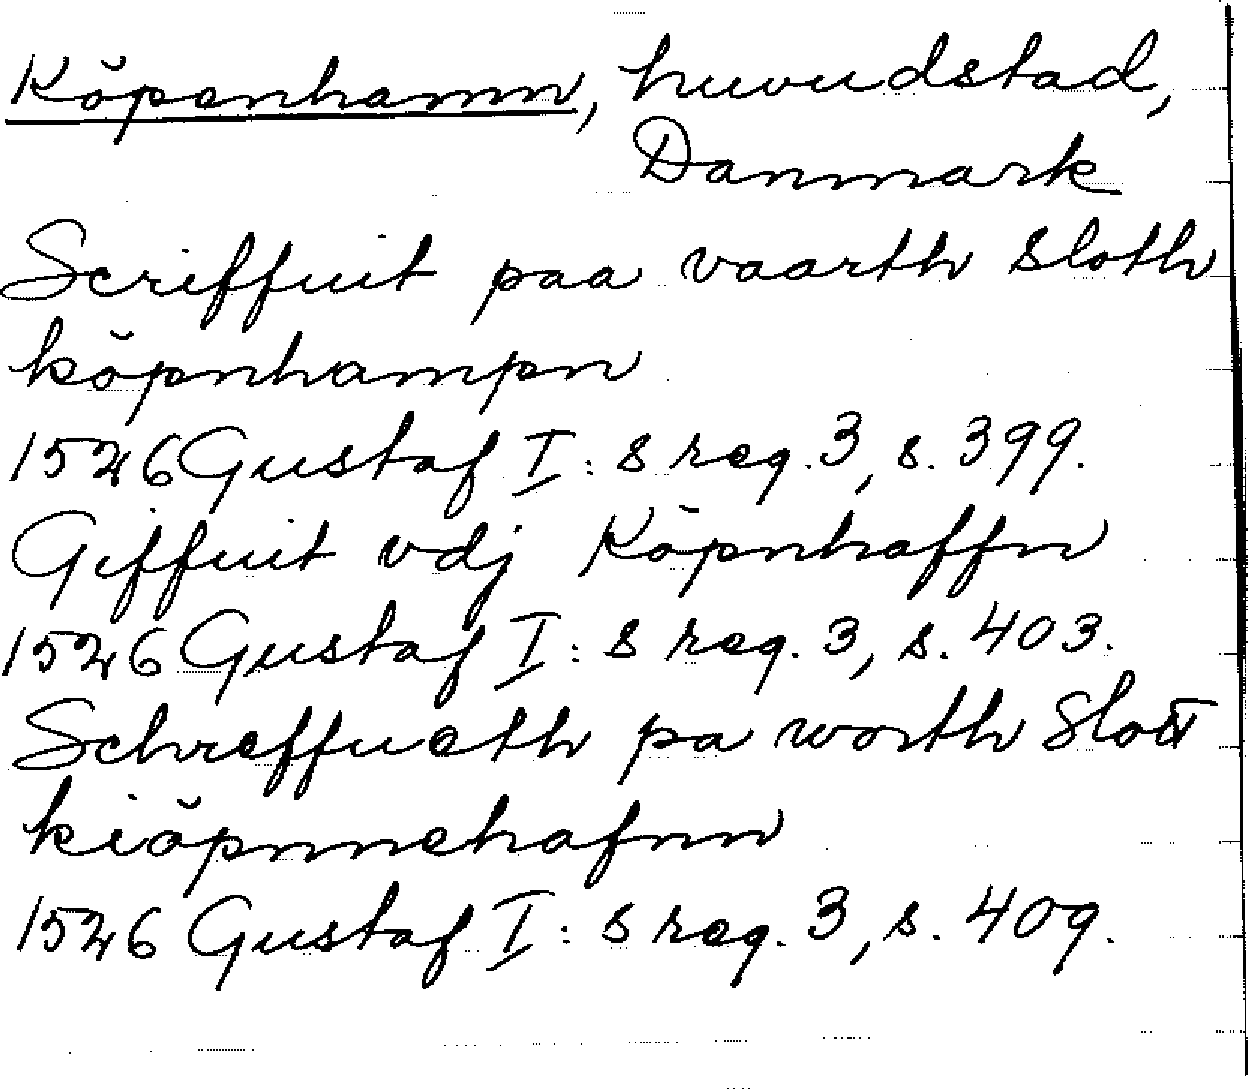 Köpenhamn, huvudstad,
Danmark
Scriffuit paa vaarth Sloth
köpnhampn
1526 Gustaf I:s reg. 3, s. 399.
Giffuit vdj Köpnhaffn
1526 Gustaf I:s reg. 3, s. 403.
Schreffueth pa worth Slott
kiöpnnehafnn
1526 Gustaf I:s reg. 3, s. 409.